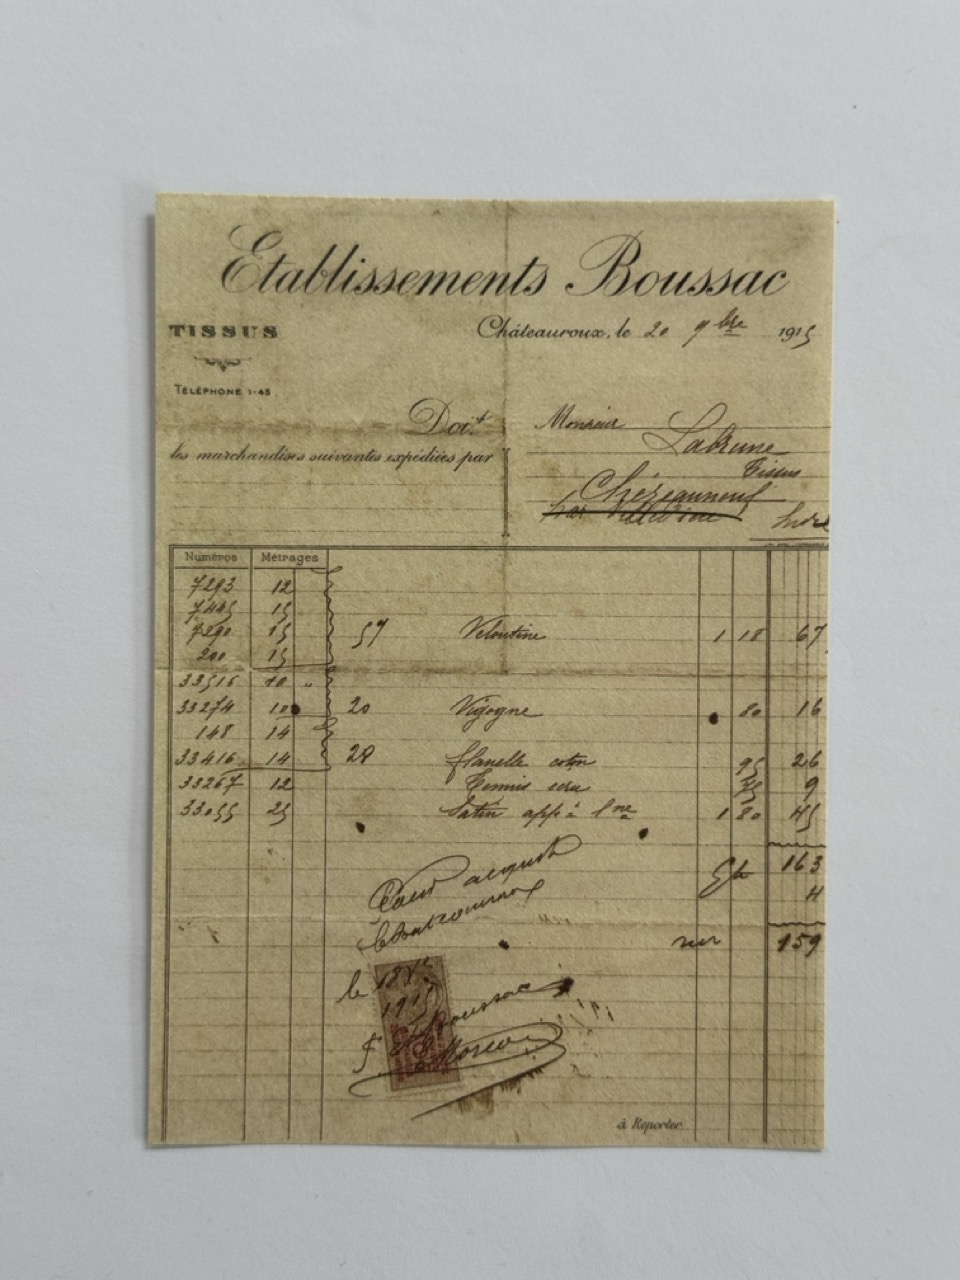 Etablissements Boussac
TISSUS
Châteauroux, le 20 9bre 1915
TÉLÉPHONE 1-45
Doit
Monsieur Labrune
les marchandises suivantes expédiées par
Tissus
Chézeauneuf
par Indre
Numéros Métrages
7293 12
7445 15
7290 15 57 Veloutine 1 18 67
200 15
33516 10 "
33274 10 20 Vigogne 80 16
148 14
33416 14 28 flanelle coton 95 26
33267 12 Tennis écru 75 9
33055 25 Satin app à 1 80 45
163
Pour acquit
Chateauroux
4
net 159
le 18 Xbre
1915
Boussac
à Reporter